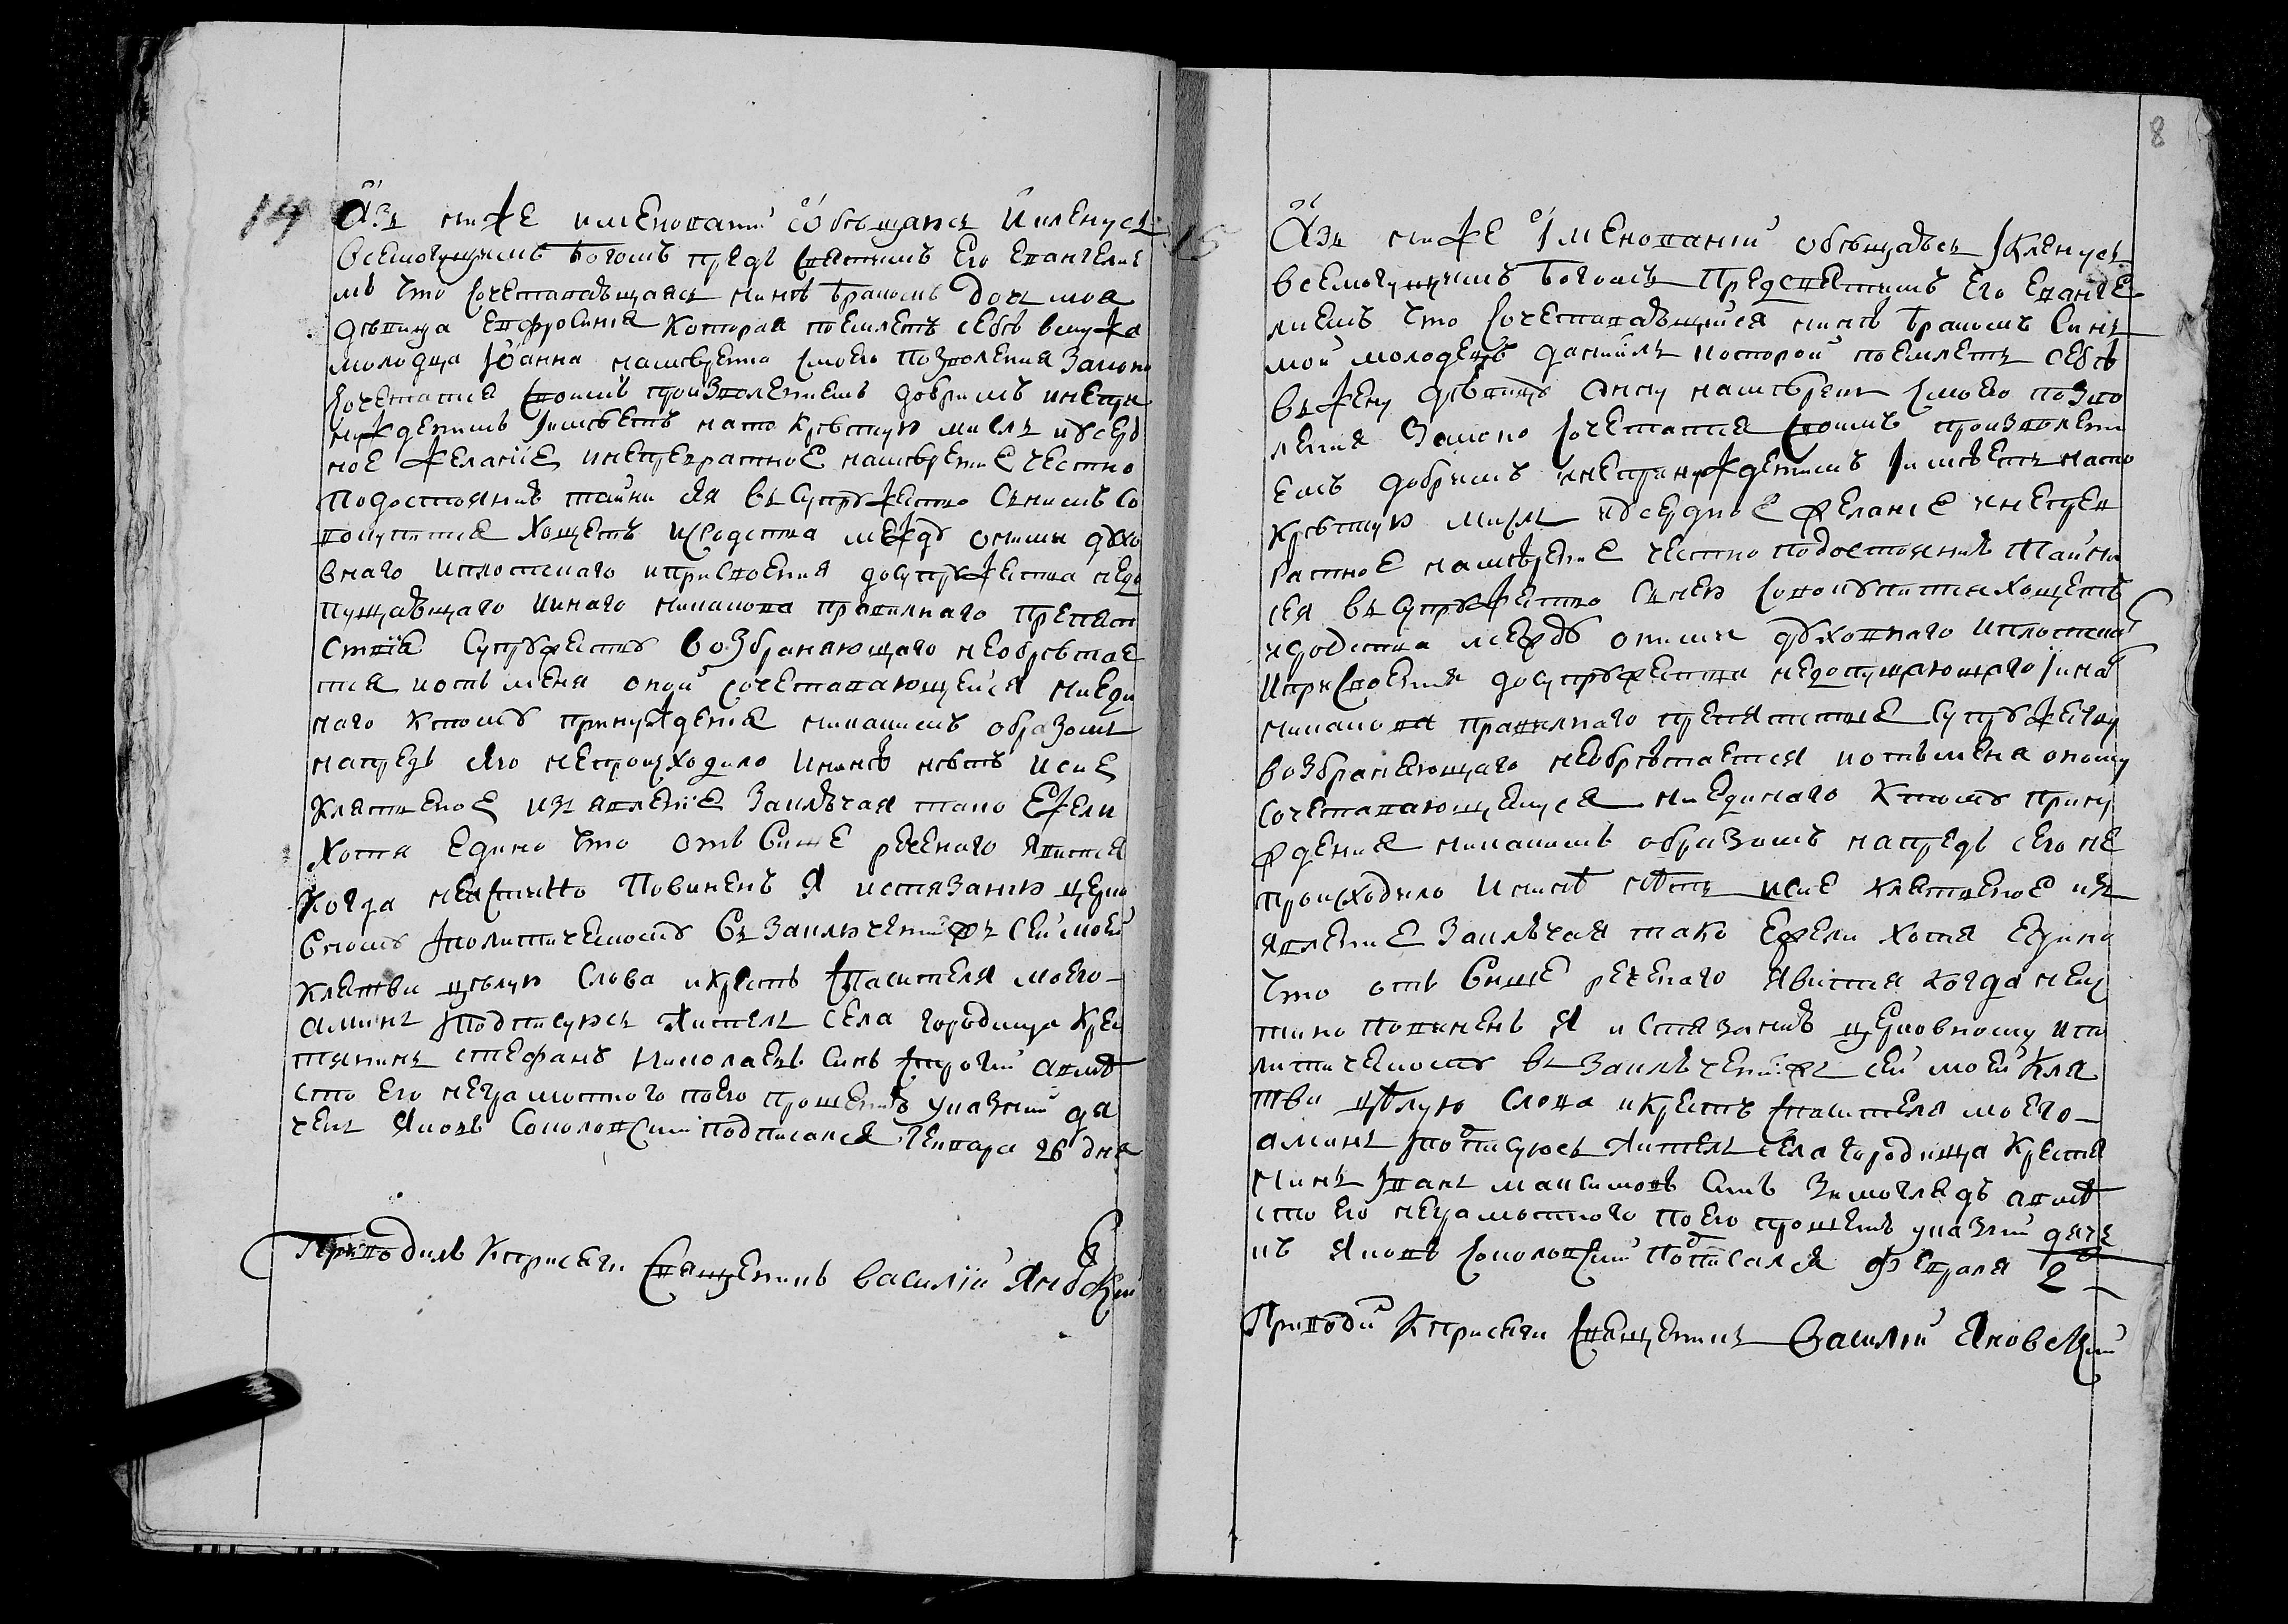 14
Азъ ниже именованій обѣщаюсь и кленусь
всемогущимъ Богомъ предъ святымъ его евангелие
мъ что сочетавающаяся нинѣ бракомъ дочь моя
дѣвица Евфросиния которая поемлетъ себѣ в мужа
молодца Іоанна намѣрено с моего позволения законо
сочетатся своимъ произволениемъ добримъ и непри
нужденимъ и имѣетъ на то крѣпкую мисль и усерд
ное желаніе и непревратное намѣрение честно
по достоянию тайни сея въ супружество съ нимъ со
вокупится хощетъ и сродства между оними духо
внаго и плотснаго и присвоения до супружества недо
пущающаго и инаго никакова правилнаго препят
ствія супружеству возбраняющаго необрѣтае
тся и отъ меня оной сочетавающейся ниеди
наго к тому принуждения никакимъ образомъ
напредь сего непроисходило и нинѣ нѣсть и сие
клятвеное изъявленіе заключая тако ежели
хотя едино что отъ више реченаго явится
когда неистинно повиненъ я истязанию церко
вному и политическому въ заключеній жъ сей моей
клятви цѣлую слова и крестъ Спасителя моего
аминь подписуюсь житель села Городища кре
стянинъ Стефанъ Николаевъ синъ Строгій а вмѣ
сто его неграмотного по его прошению указній дя
чекъ Яковъ Соколовскій подписался генвара 26 дня
Приводилъ к присяги священникъ Василій Яновскій
8
15
Азъ ниже іменованій обѣщаюсь і кленусь
всемогущимъ Богомъ предъ святымъ его еванге
лиемъ что сочетавающийся нинѣ бракомъ синъ
мой молодецъ Даніилъ которой поемлетъ себѣ
въ жену дѣвицу Анну намѣренъ с моего позво
ления законо сочетатся своимъ произволени
емъ добримъ и непринужденимъ и имѣетъ на то
крѣпкую мисль и усердное желание и непрев
ратное намѣрение честно по достоянию тайни
сея въ супружество с нею совокупится хощетъ
и сродства между оними духовнаго и плотснаго
и присвоения до супружества недопущающаго и инаго
никакова правилнаго препятствие супружеству
возбраняющаго необрѣтается и отъ меня оному
сочетавающемуся ниединаго к тому прину
ждения никакимъ образомъ напредъ сего не
происходило и нинѣ нѣсть и сие клятвеное изъ
явление заключая тако ежели хотя едино
что отъ више реченаго явится когда неис
тино повиненъ я истязанию церковному и по
литическому въ заключеній жъ сей моей кля
тви цѣлую слова и крестъ Спасителя моего
аминь подписуюсь житель села Городища крестя
нинъ Іванъ Максимовъ синъ Зимоглядъ а вмѣ
сто его неграмотного по его прошению указній дяче
къ Яковъ Соколовскій подписался февраля 2
Приводи к присяги священникъ Василій Яновскій